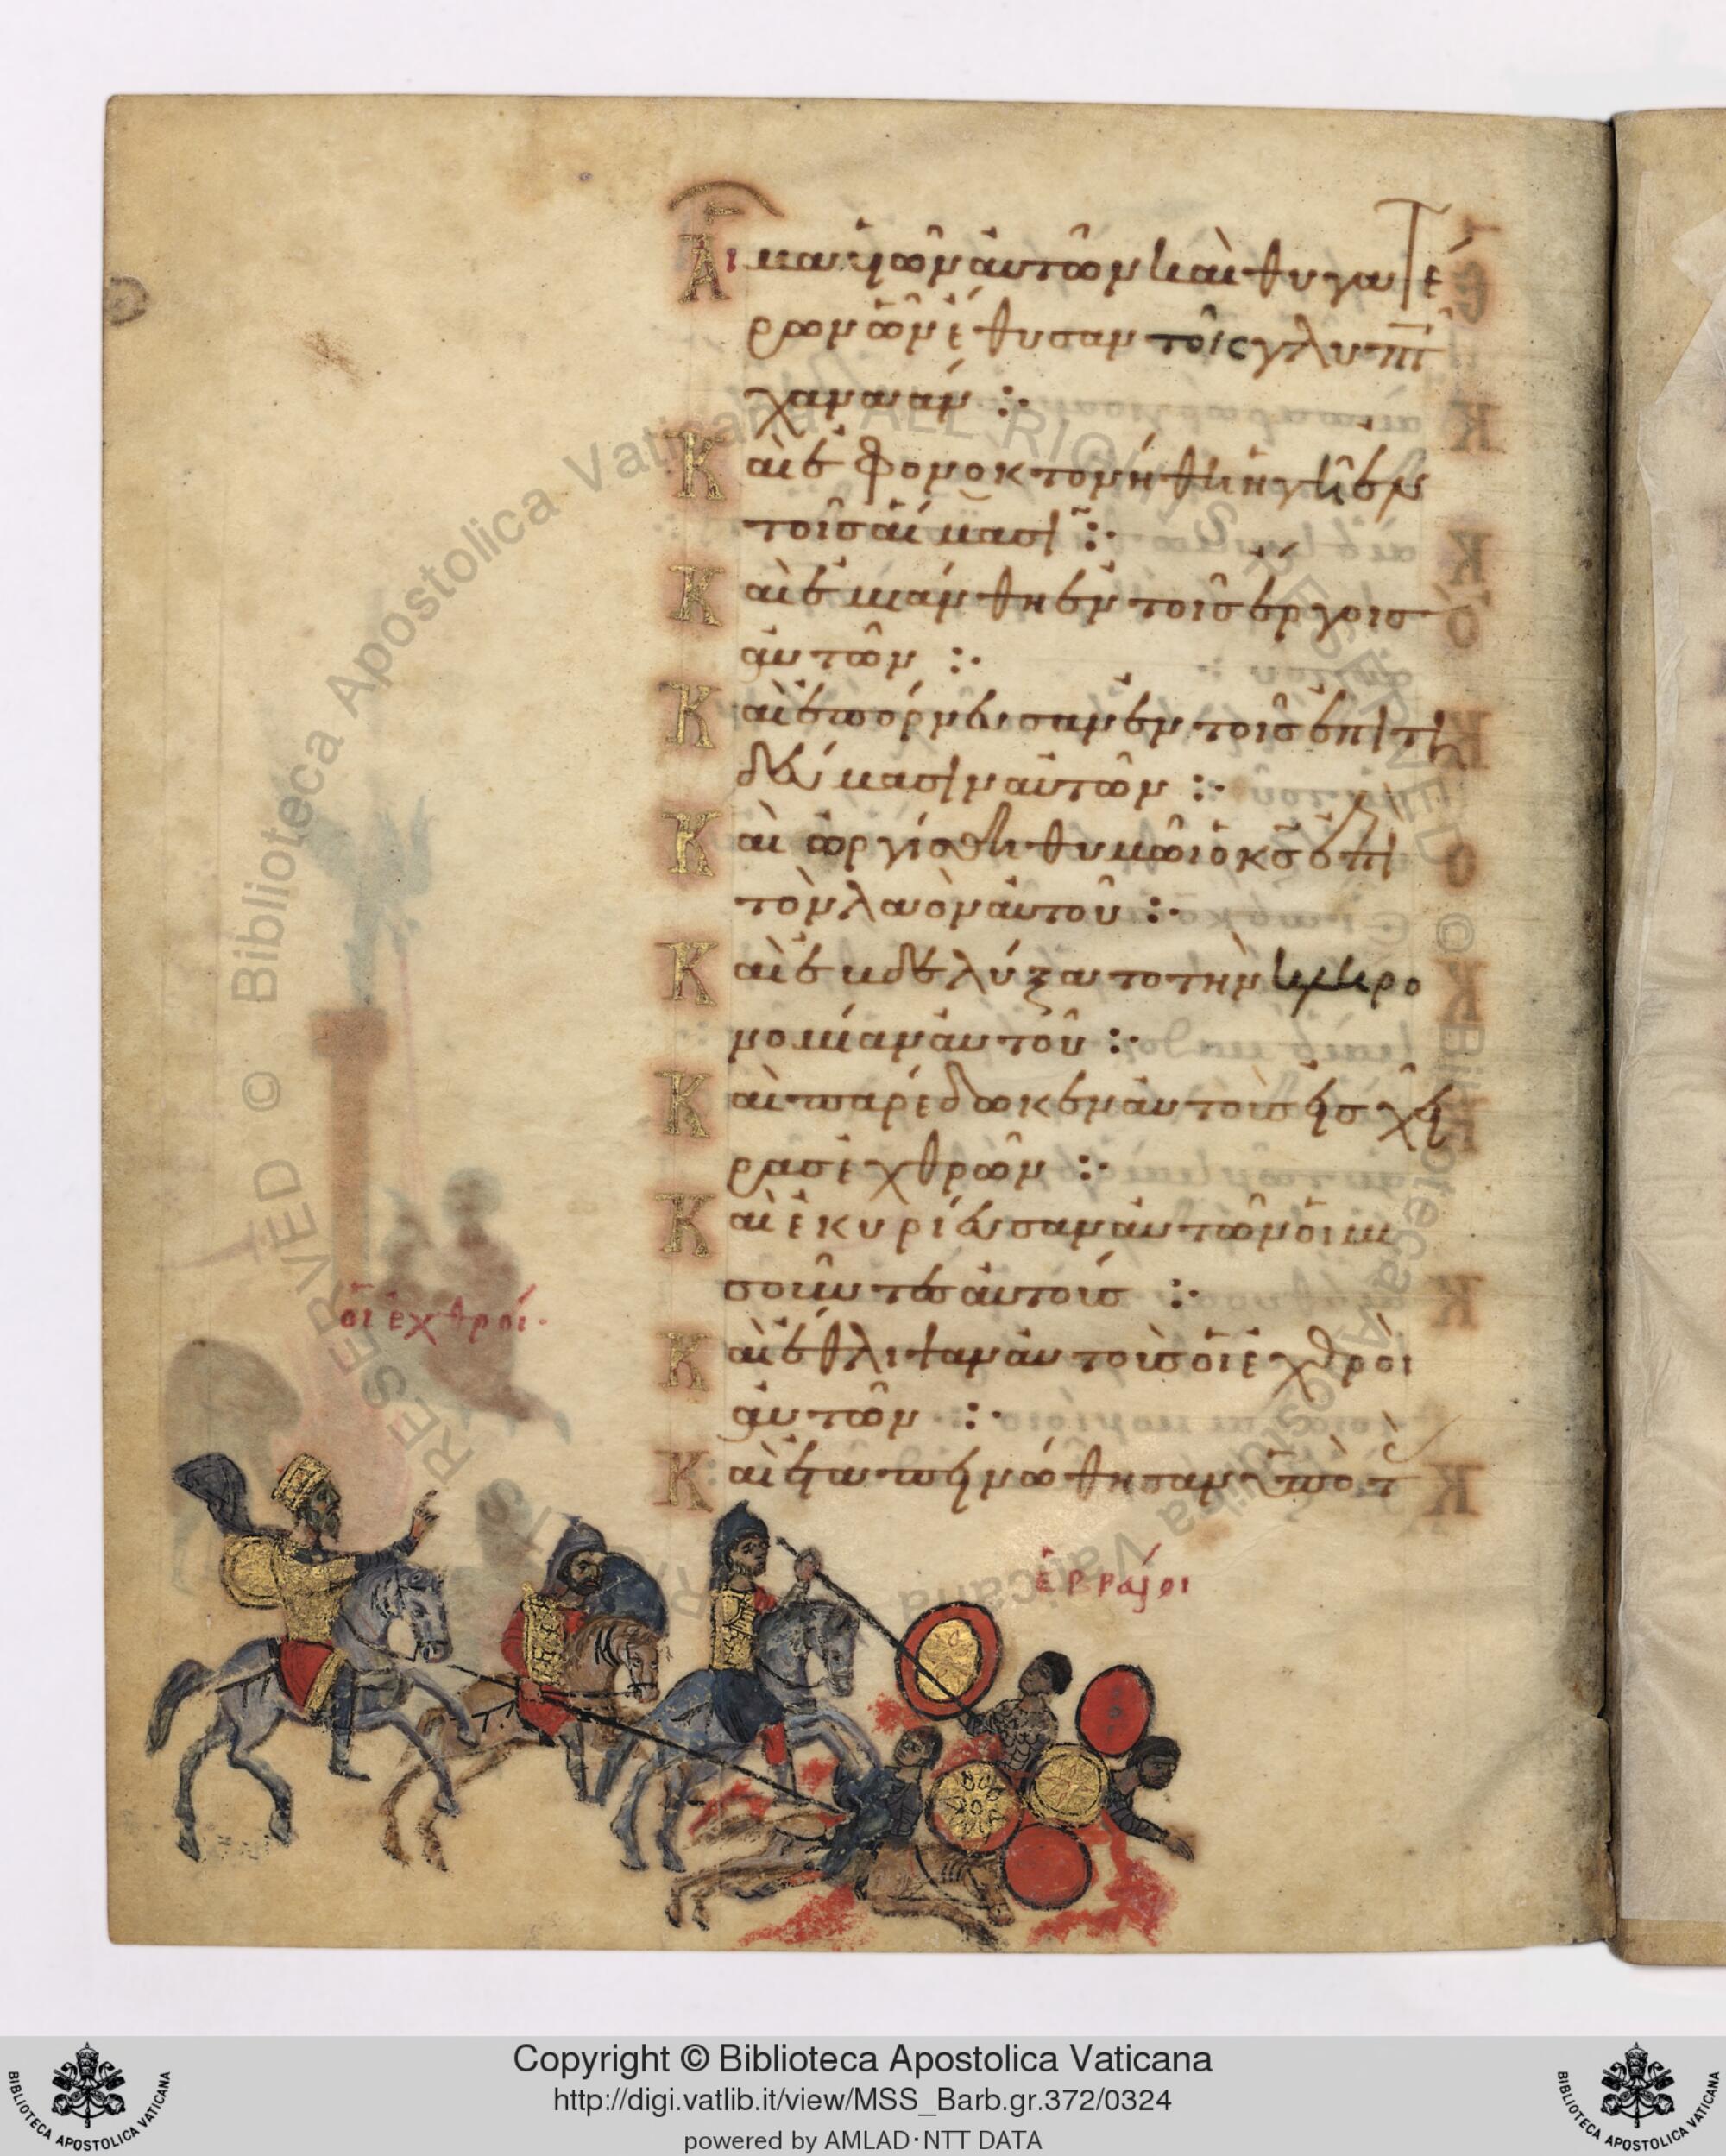 Αἷμα υἱῶν αὐτῶν καὶ θυγατέ
ρων ὧν ἔθυσαν τοῖς γλυπτ
χαναάν :·
Καὶ ἐφονοκτονήθη ἡ γῆ ἐν
τοῖς αἵμασι :·
Καὶ ἐμιάνθη ἐν τοῖς ἔργοις
αὐτῶν :·
Καὶ ἐπόρνευσαν ἐν τοῖς ἐπιτη
δεύμασιν αὐτῶν :·
Καὶ ὠργίσθη θυμῶι ὁ κς ἐπὶ
τὸν λαὸν αὐτοῦ :·
Καὶ ἐβδελύξατο τὴν κληρο
νομίαν αὐτοῦ :·
Καὶ παρέδωκεν αὐτοὺς εἰς χεῖ
ρας ἐχθρῶν :·
Καὶ ἐκυρίευσαν αὐτῶν οἱ μι
σοῦντες αὐτούς :·
Καὶ ἔθλιψαν αὐτοὺς οἱ ἐχθροὶ
αὐτῶν :·
Καὶ ἐταπεινώθησαν ὑπὸ τ
οἱ ἐχθροί·
ἑβραῖοι
Copyright © Biblioteca Apostolica Vaticana
http://digi.vatlib.it/view/MSS_Barb.gr.372/0324
powered by AMLAD·NTT DATA
BIBLIOTECA APOSTOLICA VATICANA
BIBLIOTECA APOSTOLICA VATICANA
© Biblioteca Apostolica Vaticana ALL RIGHTS RESERVED © Biblioteca Apostolica Vaticana ALL RIGHTS RESERVED